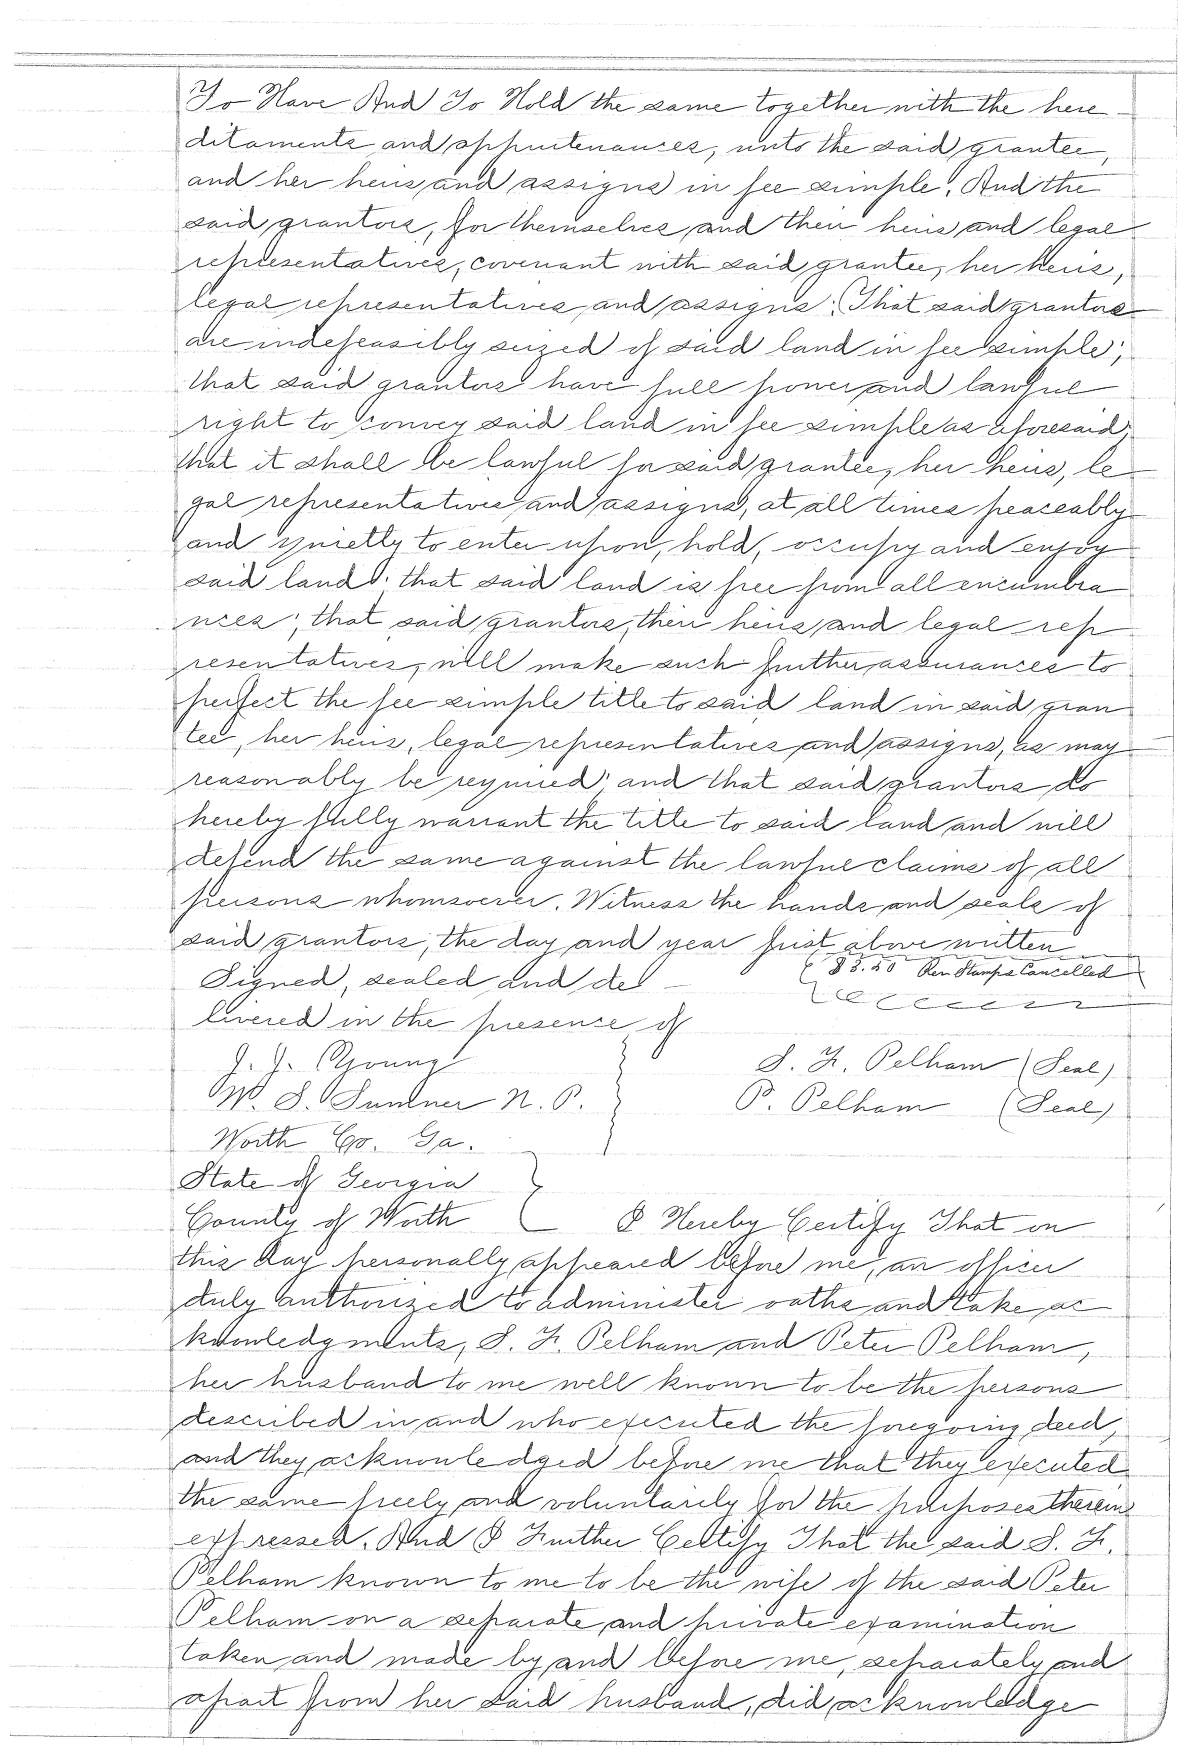 To Have And To Hold the same together with the here-
ditaments and appurtenances, unto the said grantee,
and her heirs and assigns in fee simple. And the
said grantors, for themselves and their heirs and legal
representatives, covenant with said grantee, her heirs,
legal representatives and assigns: That said grantors
are indefeasibly seized of said land in fee simple;
that said grantors have full power and lawful
right to convey said land in fee simple as aforesaid;
that it shall be lawful for said grantee, her heirs, le-
gal representatives and assigns, at all times peaceably
and quietly to enter upon, hold, occupy and enjoy
said land; that said land is free from all encumbra
nces; that said grantors, their heirs and legal rep
resentatives, will make such further assurances to
perfect the fee simple title to said land in said gran
tee, her heirs, legal representatives and assigns, as may
reasonably be required; and that said grantors do
hereby fully warrant the title to said land and will
defend the same against the lawful claims of all
persons whomsoever. Witness the hands and seals of
said grantors, the day and year first above written
$3.50 Rev. Stamps Cancelled
Signed, sealed and de-
livered in the presence of
J. J. Young S. F. Pelham (Seal)
W. S. Sumner N. P. P. Pelham (Seal)
Worth Co. Ga.
State of Georgia
County of Worth I Hereby Certify That on
this day personally appeared before me, an officer
duly authorized to administer oaths and take ac
knowledgments, S. F. Pelham and Peter Pelham,
her husband to me well known to be the persons
described in and who executed the foregoing deed,
and they acknowledged before me that they executed
the same freely and voluntarily for the purposes therein
expressed. And I Further Certify That the said S. F.
Pelham known to me to be the wife of the said Peter
Pelham on a separate and private examination
taken and made by and before me, separately and
apart from her said husband, did acknowledge